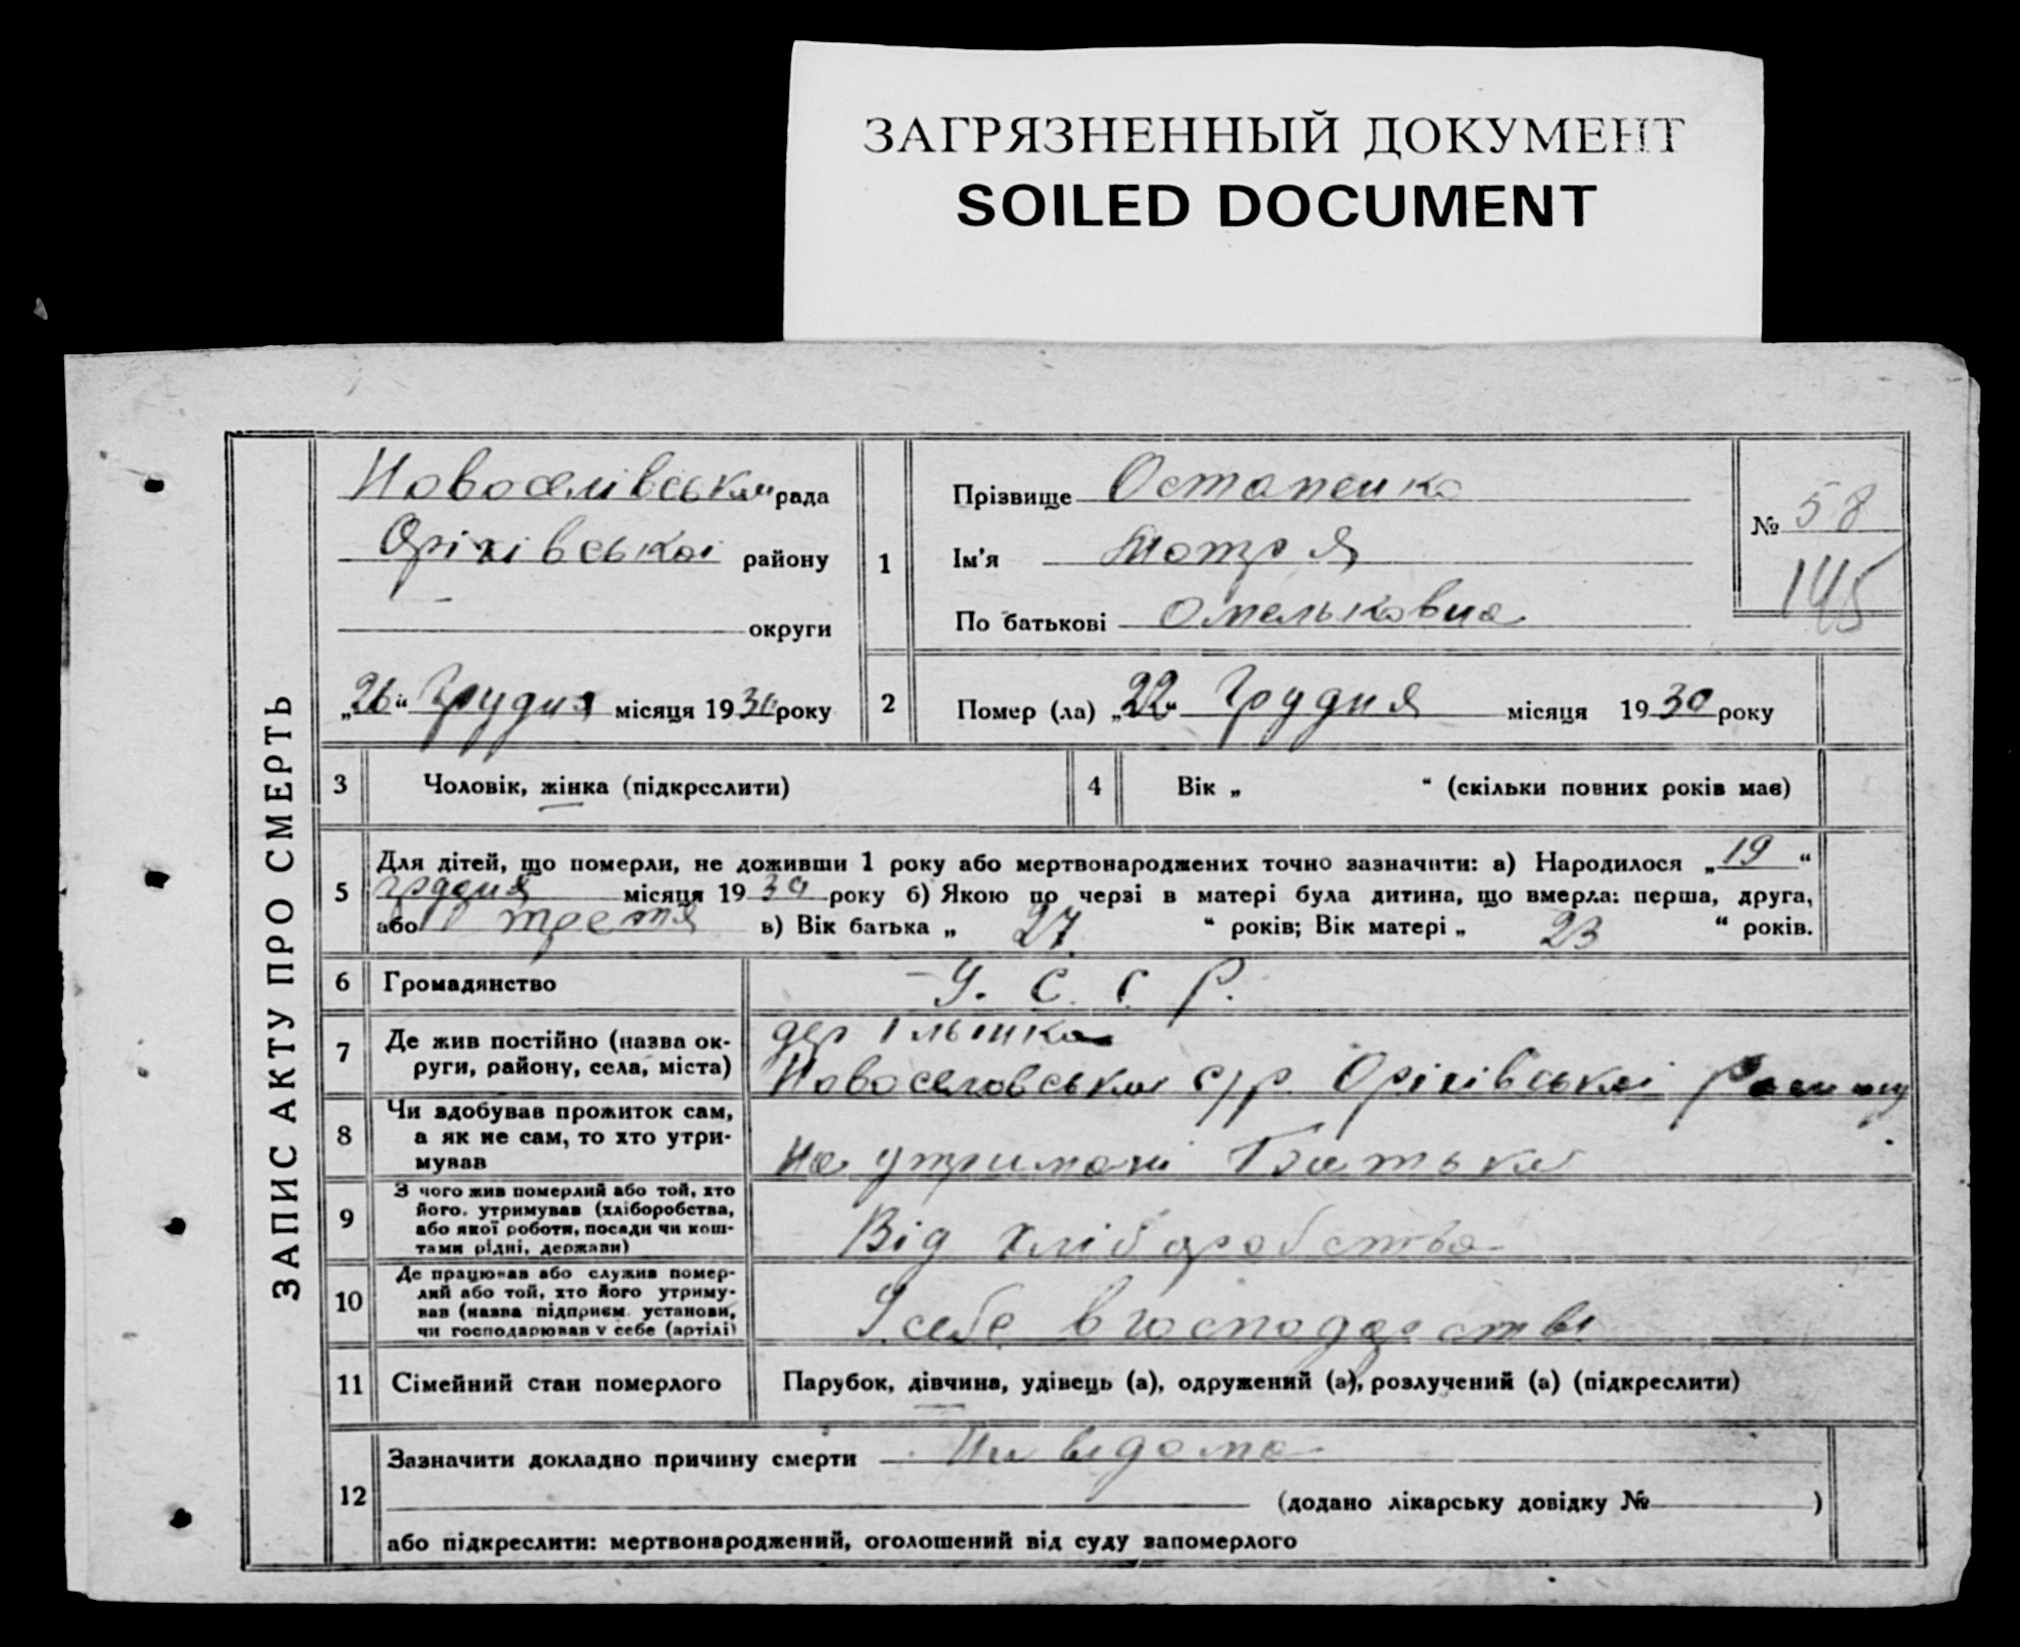 ЗАГРЯЗНЕННЫЙ ДОКУМЕНТ
SOILED DOCUMENT
ЗАПИС АКТУ ПРО СМЕРТЬ
Новоселівська рада
Оріхівської району
округи
„26“ Грудня місяця 1930 року
1
Прізвище Остапенко
Ім'я Мотря
По батькові Омельковна
№ 58
145
2
Помер (ла) „22“ Грудня місяця 1930 року
3
Чоловік, жінка (підкреслити)
4
Вік „ “ (скільки повних років має)
5
Для дітей, що померли, не доживши 1 року або мертвонароджених точно зазначити: а) Народилося „19“
грудня місяця 1930 року б) Якою по черзі в матері була дитина, що вмерла: перша, друга,
або третя в) Вік батька „ 27 “ років; Вік матері „ 23 “ років.
6
Громадянство
У. С. С. Р.
7
Де жив постійно (назва ок-
руги, району, села, міста)
дер
Новоселовська с/р. Оріхівської
8
Чи здобував прожиток сам,
а як не сам, то хто утри-
мував
На утримані Батька
9
З чого жив померлий або той, хто
його. утримував (хліборобства,
або якої роботи, посади чи кош-
тами рідні, держави)
Від хліборобства
10
Де працював або служив помер-
лий або той, хто його утриму-
вав (назва підприєм. установи,
чи господарював у себе (артілі)
У себе в господарстві
11
Сімейний стан померлого
Парубок, дівчина, удівець (а), одружений (а), розлучений (а) (підкреслити)
12
Зазначити докладно причину смерти Не відома
(додано лікарську довідку № )
або підкреслити: мертвонароджений, оголошений від суду запомерлого